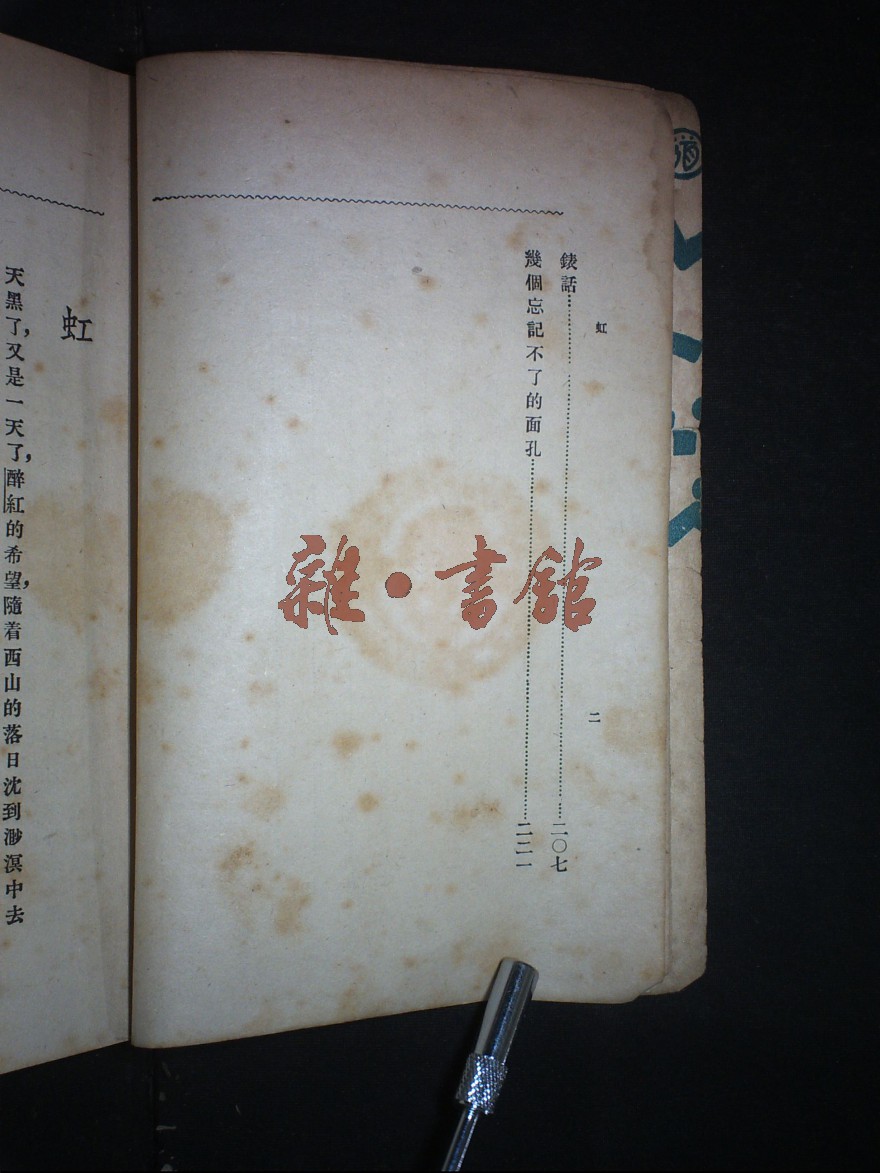 虹
二
錶話……二〇七
幾個忘記不了的面孔……二二一
虹
天黑了，又是一天了，醉紅的希望，隨着西山的落日沈到渺溟中去
雜·書館